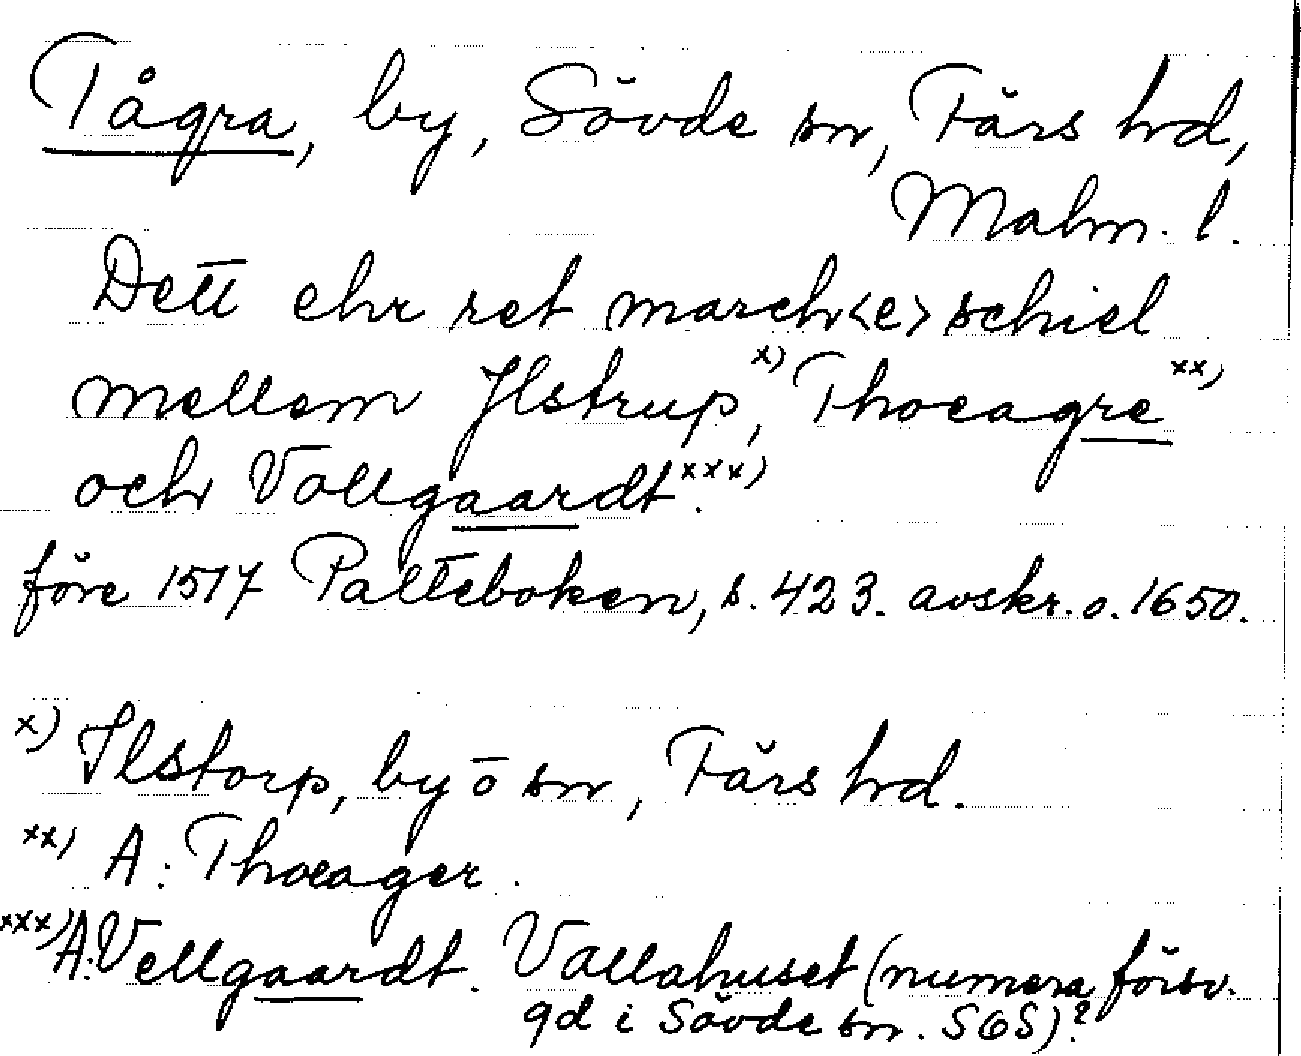 Tågra, by, Sövde sn, Färs hd,
Malm. l.
Dett ehr ret march<e>schiel
mellem Jlstrup,x) Thoeagrexx)
och Vallgaardtxxx).
före 1517 Palteboken, s. 423. avskr. o. 1650.
x) Ilstorp, by o sn, Färs hd.
xx) A: Thoeager.
xxx) A: Vellgaardt. Vallahuset (numera försv.
gd i Sövde sn. SOS)?